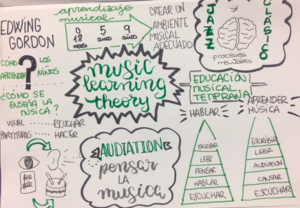 EDWING
GORDON
aprendizaje
musical
0 5 
18 años
meses años
CREAR UN
AMBIENTE
MUSICAL
ADECUADO
JAZZ
CLÁSICO
procesos
mentales
CÓMO
APRENDEN
LOS
NIÑOS
?
¿CÓMO SE
ENSEÑA LA
MÚSICA?
VISUAL
PARTITURAS
ESCUCHAR
HACER
music
learning
theory
EDUCACIÓN
MUSICAL
TEMPRANA
HABLAR
APRENDER
MÚSICA
ESCRIBIR
LEER
PENSAR
HABLAR
ESCUCHAR
ESCRIBIR
LEER
AUDIATION
CANTAR
ESCUCHAR
AUDIATION
pensar
la
musica